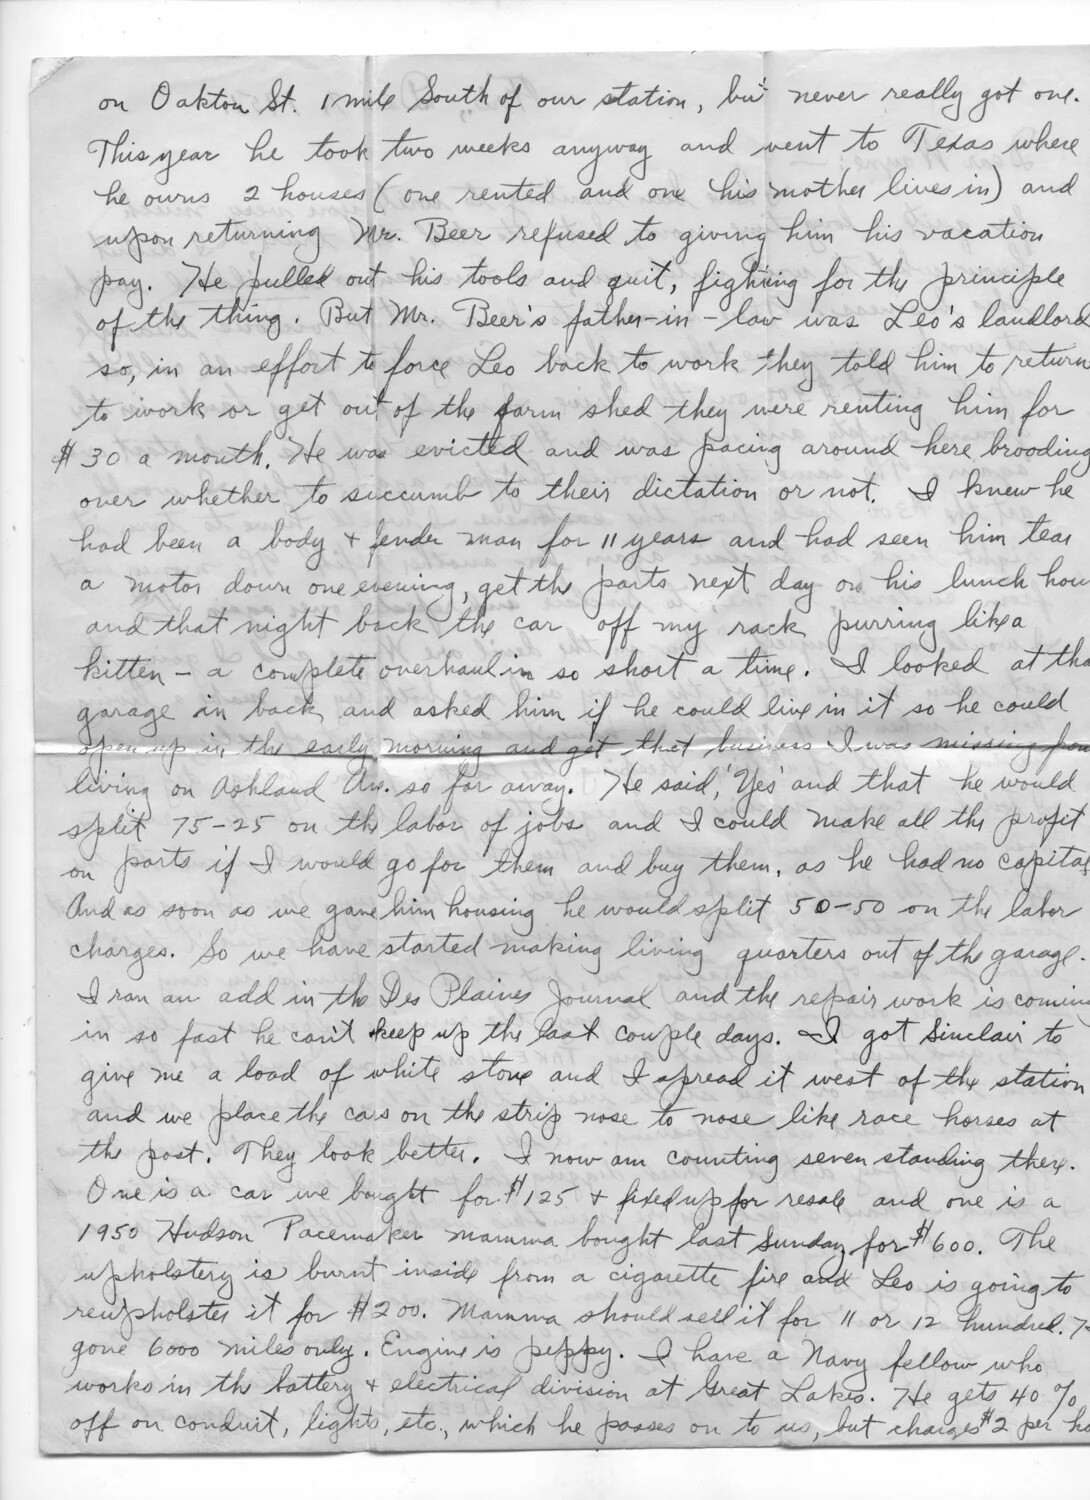 on Oakton St. 1 mile South of our station, but never really got one.
This year he took two weeks anyway and went to Texas where
he owns 2 houses (one rented and one his mother lives in) and
upon returning Mr. Beer refused to giving him his vacation
pay. He pulled out his tools and quit, fighting for the principle
of the thing. But Mr. Beer's father-in-law was Leo's landlord
so, in an effort to force Leo back to work they told him to return
to work or get out of the farm shed they were renting him for
$30 a month. He was evicted and was pacing around here brooding
over whether to siccumb to their dictation or not. I knew he
had been a body & fender man for 11 years and had seen him tear
a motor down one evening, get the parts next day on his lunch hour
and that night back the car off my rack purring like a
kitten - a complete overhaul in so short a time. I looked at tha
garage in back and asked him if he could live in it so he could
open up in the early morning and get that business I was missing from
living on Ashland Av. so far away. He said, 'Yes' and that he would
split 75-25 on the labor of jobs and I could make all the profit
on parts if I would go for them and buy them, as he had no capital
And as soon as we gave him housing he would split 50-50 on the labor
charges. So we have started making living quarters out of the garage.
I ran an add in the Des Plaines Journal and the repair work is coming
in so fast he can't keep up the last couple days. I got Sinclair to
give me a load of white stone and I spread it west of the station
and we place the cars on the strip nose to nose like race horses at
the post. They look better. I now am counting seven standing there.
One is a car we bought for $125 & fixed up for resale and one is a
1950 Hudson Pacemaker mamma bought last Sunday for $600. The
upholstery is burnt inside from a cigarette fire and Leo is going to
reupholster it for $200. Mamma should sell it for 11 or 12 hundred.
gone 6000 miles only. Engine is peppy. I have a Navy fellow who
works in the battery & electrical division at Great Lakes. He gets 40%
off on conduit, lights, etc., which he passes on to us, but charges $2 per ho